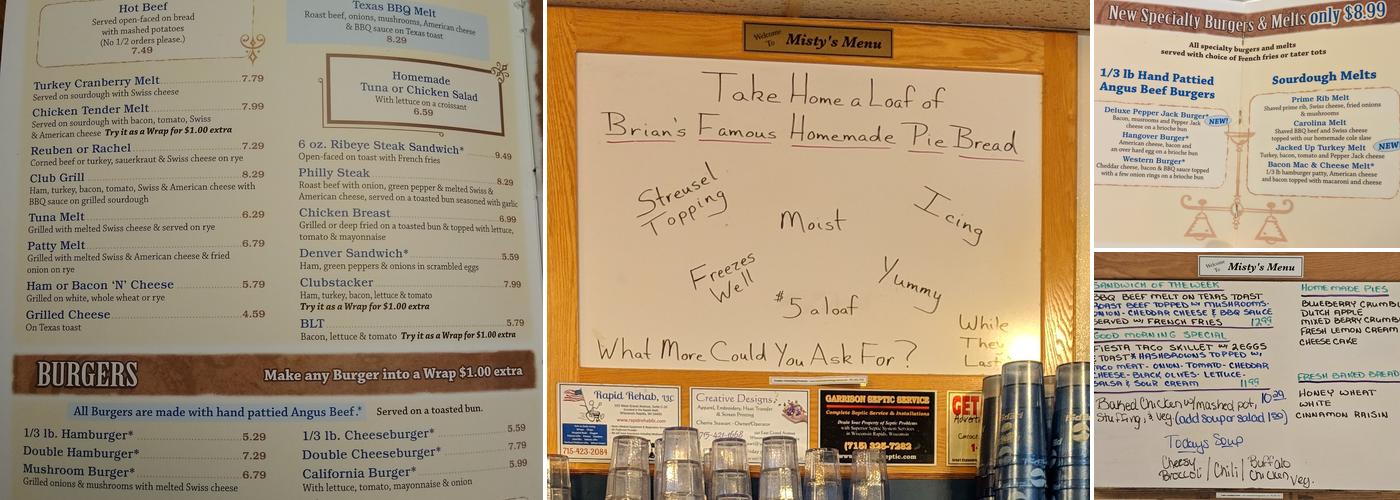 Hot Beef
Served open-faced on bread
with mashed potatoes
(No 1/2 orders please.)
7.49
Turkey Cranberry Melt 7.79
Served on sourdough with Swiss cheese
Chicken Tender Melt 7.99
Served on sourdough with bacon, Swiss
& American cheese Try it as a Wrap for $1.00 extra
Reuben or Rachel 7.29
Corned beef or turkey, sauerkraut & Swiss cheese on rye
Club Grill 8.29
Ham, turkey, bacon, tomato, Swiss & American cheese with
BBQ sauce on grilled sourdough
Tuna Melt 6.29
Grilled with melted Swiss cheese & served on rye
Patty Melt 6.79
Grilled with melted Swiss & American cheese & fried
onion on rye
Ham or Bacon 'N' Cheese 5.79
Grilled on white, whole wheat or rye
Grilled Cheese 4.59
On Texas toast
Texas BBQ Melt
Roast beef, onions, mushrooms, American cheese
& BBQ sauce on Texas toast
8.29
Homemade
Tuna or Chicken Salad
With lettuce on a croissant
6.59
6 oz. Ribeye Steak Sandwich* 9.49
Open-faced on toast with French fries
Philly Steak 8.29
Roast beef with onion, green pepper & melted Swiss &
American cheese, served on a toasted bun seasoned with garlic
Chicken Breast 6.99
Grilled or deep fried on a toasted bun & topped with lettuce,
tomato & mayonnaise
Denver Sandwich* 5.59
Ham, green peppers & onions in scrambled eggs
Clubstacker 7.99
Ham, turkey, bacon, lettuce & tomato
Try it as a Wrap for $1.00 extra
BLT 5.79
Bacon, lettuce & tomato Try it as a Wrap for $1.00 extra
BURGERS Make any Burger into a Wrap $1.00 extra
All Burgers are made with hand pattied Angus Beef.* Served on a toasted bun.
1/3 lb. Hamburger* 5.29
Double Hamburger* 7.29
Mushroom Burger* 6.79
Grilled onions & mushrooms with melted Swiss cheese
1/3 lb. Cheeseburger* 5.59
Double Cheeseburger* 7.79
California Burger* 5.99
With lettuce, tomato, mayonnaise & onion
Welcome To Misty's Menu
Take Home a Loaf of
Brian's Famous Homemade Pie Bread
Streusel
Topping
Moist
Icing
Freezes
Well
Yummy
$5 a loaf
While
They
Last
What More Could You Ask For?
Rapid Rehab, LLC
715-423-2084
Creative Designs
Apparel, Embroidery, Heat Transfer
& Screen Printing
GARRISON SEPTIC SERVICE
Complete Septic Service & Installations
(715) 325-7283
GET
New Specialty Burgers & Melts only $8.99
All specialty burgers and melts
served with choice of French fries or tater tots
1/3 lb Hand Pattied
Angus Beef Burgers
Deluxe Pepper Jack Burger* NEW!
Bacon, musrooms and Pepper Jack
cheese on a brioche bun
Hangover Burger*
American cheese, bacon and
an over hard egg on a brioche bun
Western Burger*
Cheddar cheese, bacon & BBQ sauce topped
with a few onion rings on a brioche bun
Sourdough Melts
Prime Rib Melt
Shaved prime rib, Swiss cheese, fried onions
& mushrooms
Carolina Melt
Shaved BBQ beef and Swiss cheese
topped with our homemade cole slaw
Jacked Up Turkey Melt NEW
Turkey, bacon, tomato and Pepper Jack cheese
Bacon Mac & Cheese Melt*
1/3 lb hamburger patty, American cheese
and bacon topped with macaroni and cheese
Welcome To Misty's Menu
SANDWICH OF THE WEEK
BBQ BEEF MELT ON TEXAS TOAST
ROAST BEEF TOPPED W/ MUSHROOMS-
ONION-CHEDDAR CHEESE & BBQ SAUCE
SERVED W/ FRENCH FRIES 12.99
GOOD MORNING SPECIAL
FIESTA TACO SKILLET W/ 2 EGGS
TOAST & HASHBROWNS TOPPED W/
TACO MEAT-ONION-TOMATO-CHEDDAR
CHEESE-BLACK OLIVES-LETTUCE-
SALSA & SOUR CREAM 11.99
Baked Chicken w/ mashed pot, 10.29
Stuffing, & veg (add soup or salad 1.80)
Todays Soup
Cheesy Broccoli / Chili / Buffalo Chicken Veg.
HOMEMADE PIES
BLUEBERRY CRUMB
DUTCH APPLE
MIXED BERRY CRUMB
FRESH LEMON CREAM
CHEESE CAKE
FRESH BAKED BREAD
HONEY WHEAT
WHITE
CINNAMON RAISIN